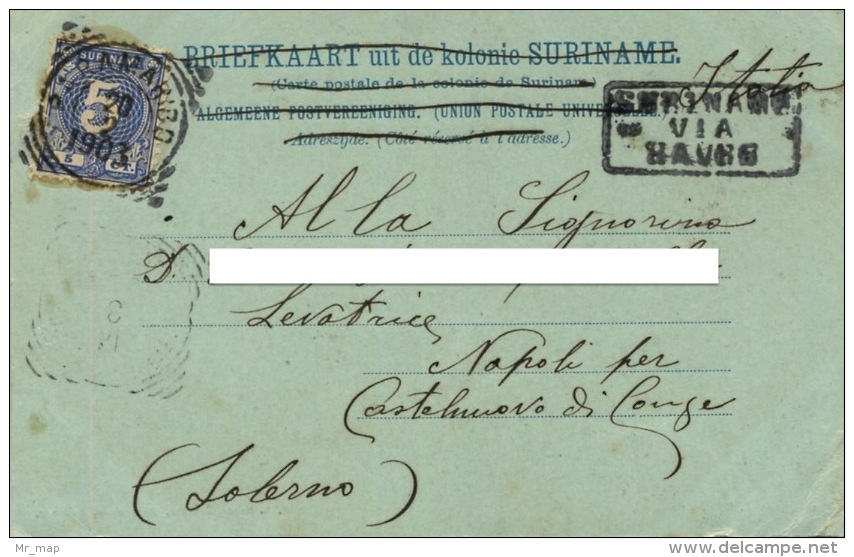 BRIEFKAART uit de kolonie SURINAME.
(Carte postale de la colonie de Suriname)
ALGEMEENE POSTVEREENIGING. (UNION POSTALE UNIVERSELLE.)
Adreszijde. (Côté réservé à l'adresse.)
Italia
SURINAME
VIA
HAVRE
SURINAME
5
PARAMARIBO
20
1903
Alla Signorina
D.
Levatrice
Napoli per
Castelnuovo di Conza
(Salerno)
Mr_map
delcampe.net